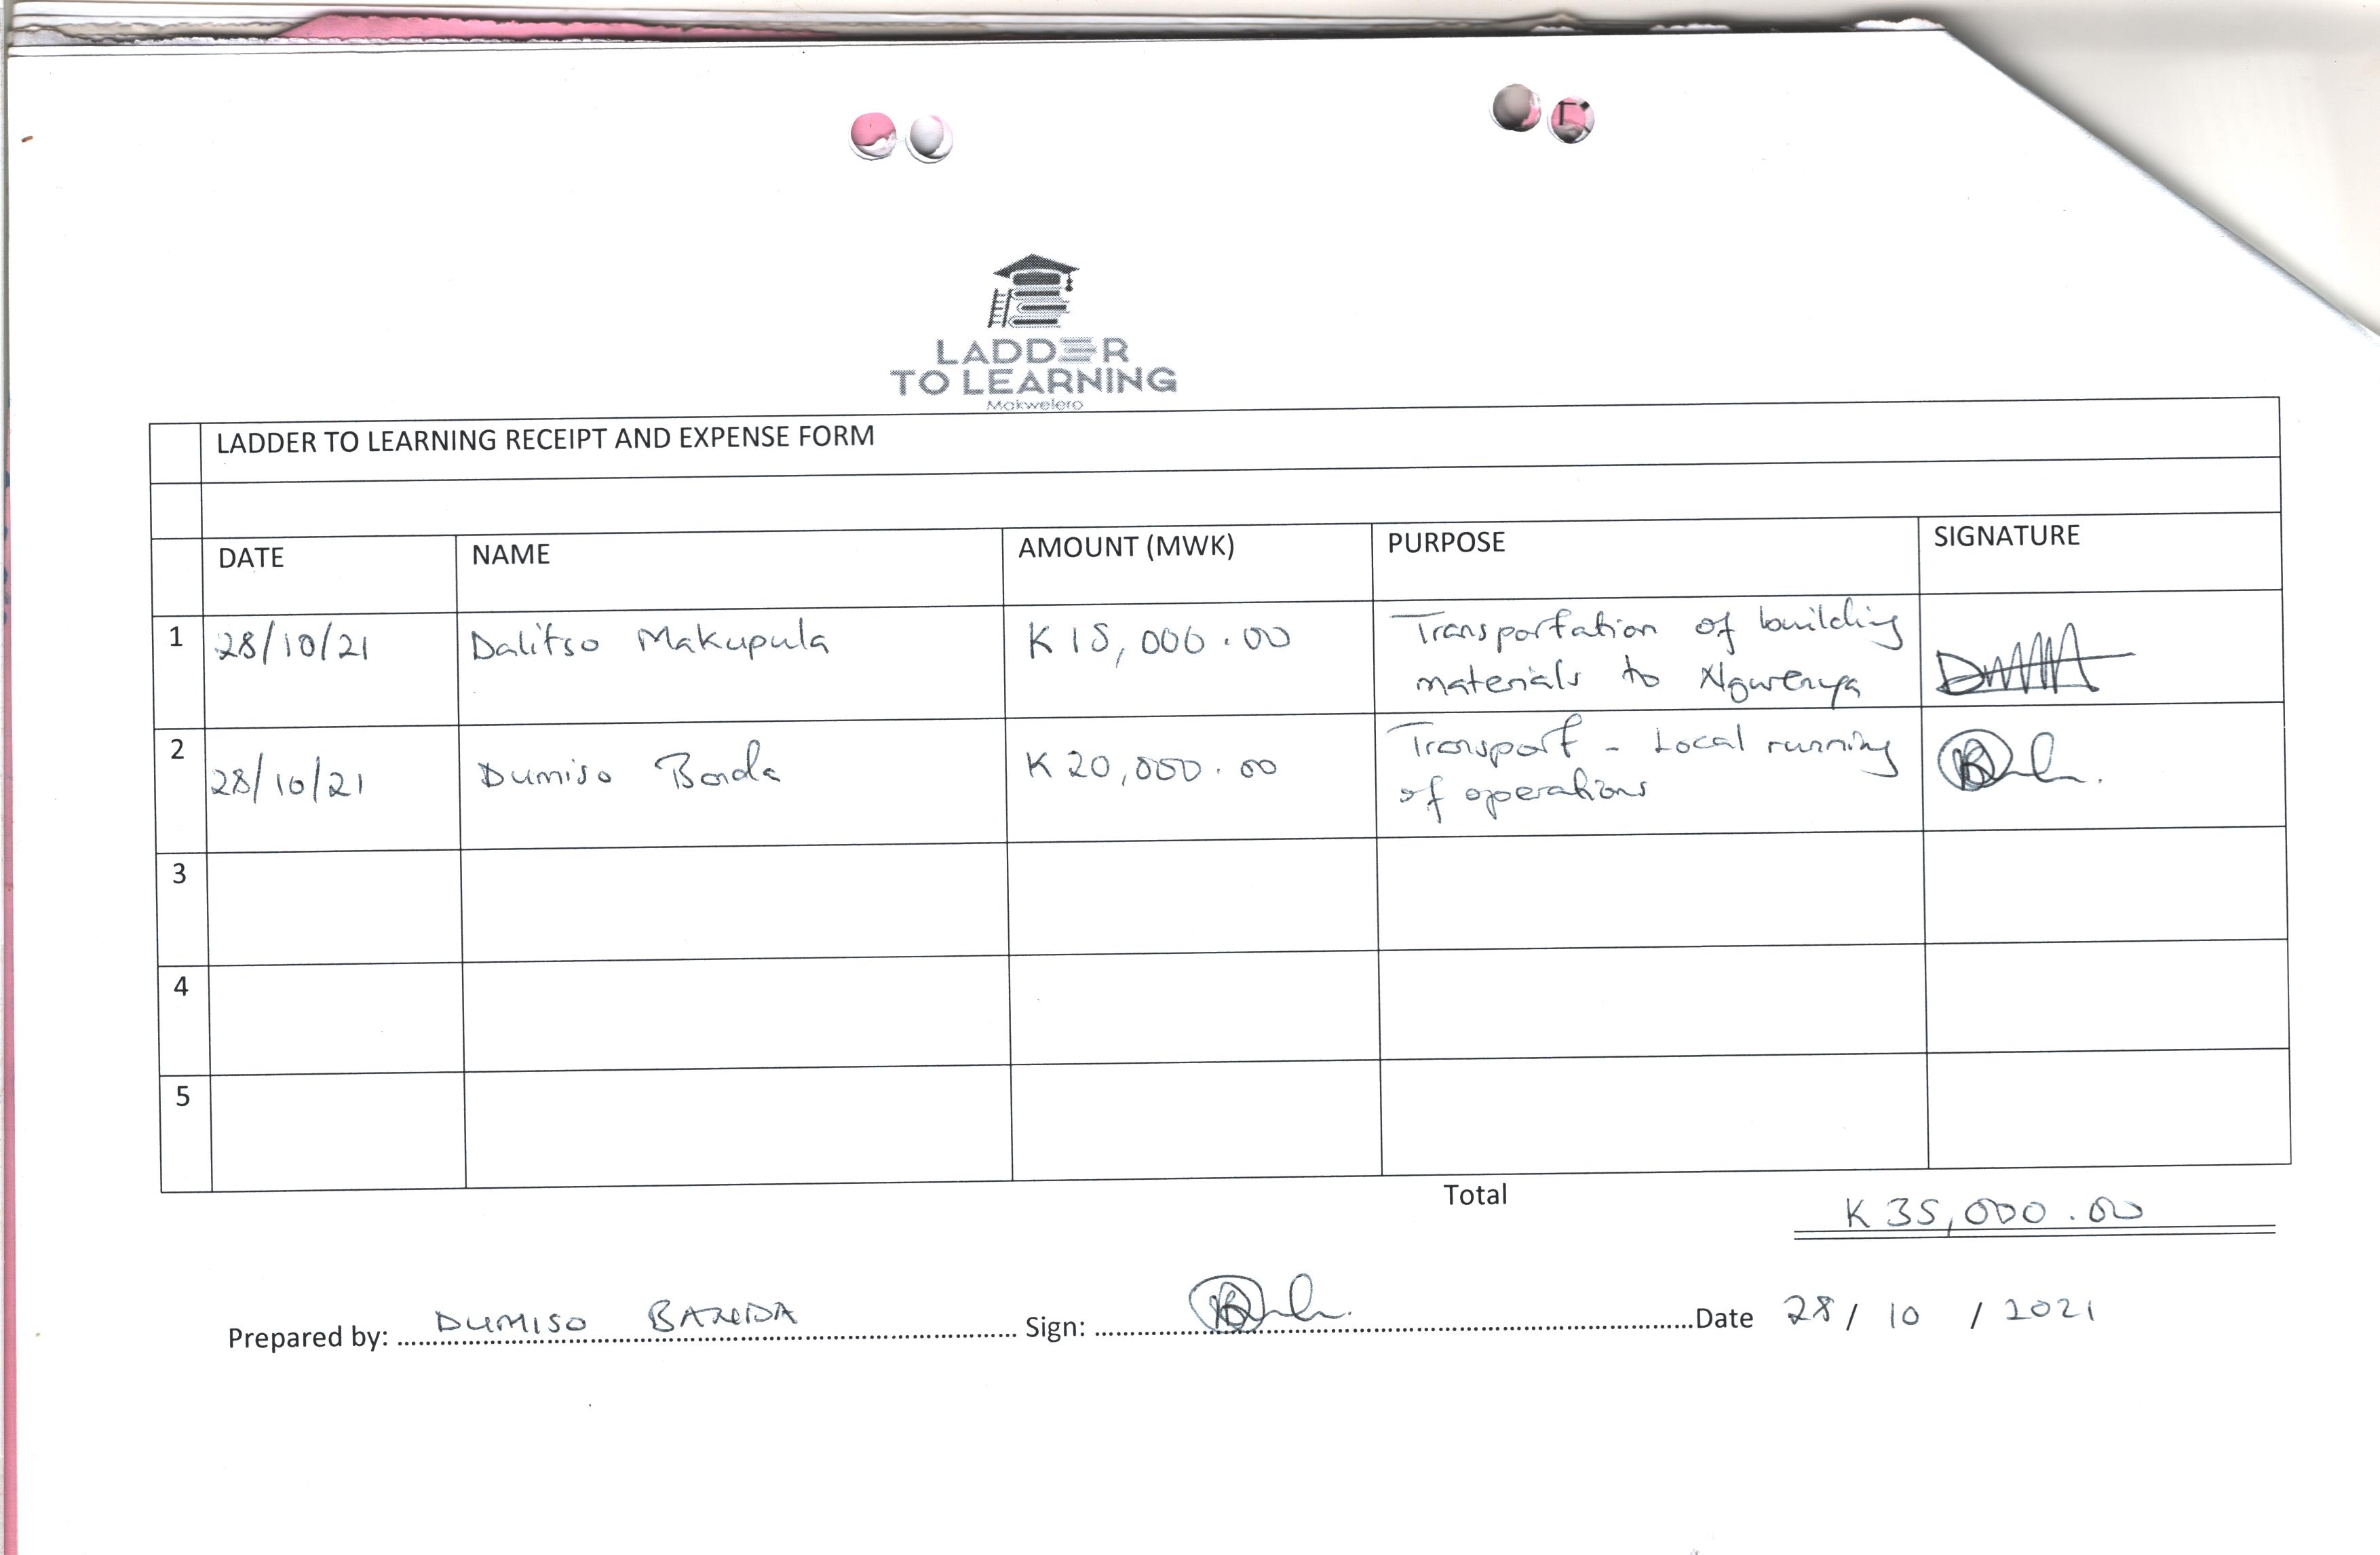 LADDER
TO LEARNING
Makwelero
LADDER TO LEARNING RECEIPT AND EXPENSE FORM
DATE NAME AMOUNT (MWK) PURPOSE SIGNATURE
1 28/10/21 Dalitso Makupula K 15,000.00 Transportation of building
materials to Ngwenya
2 28/10/21 Dumiso Banda K 20,000.00 Transport - Local running
of operations
3
4
5
Total K 35,000.00
Prepared by: DUMISO BANDA Sign: Date 28/10/2021